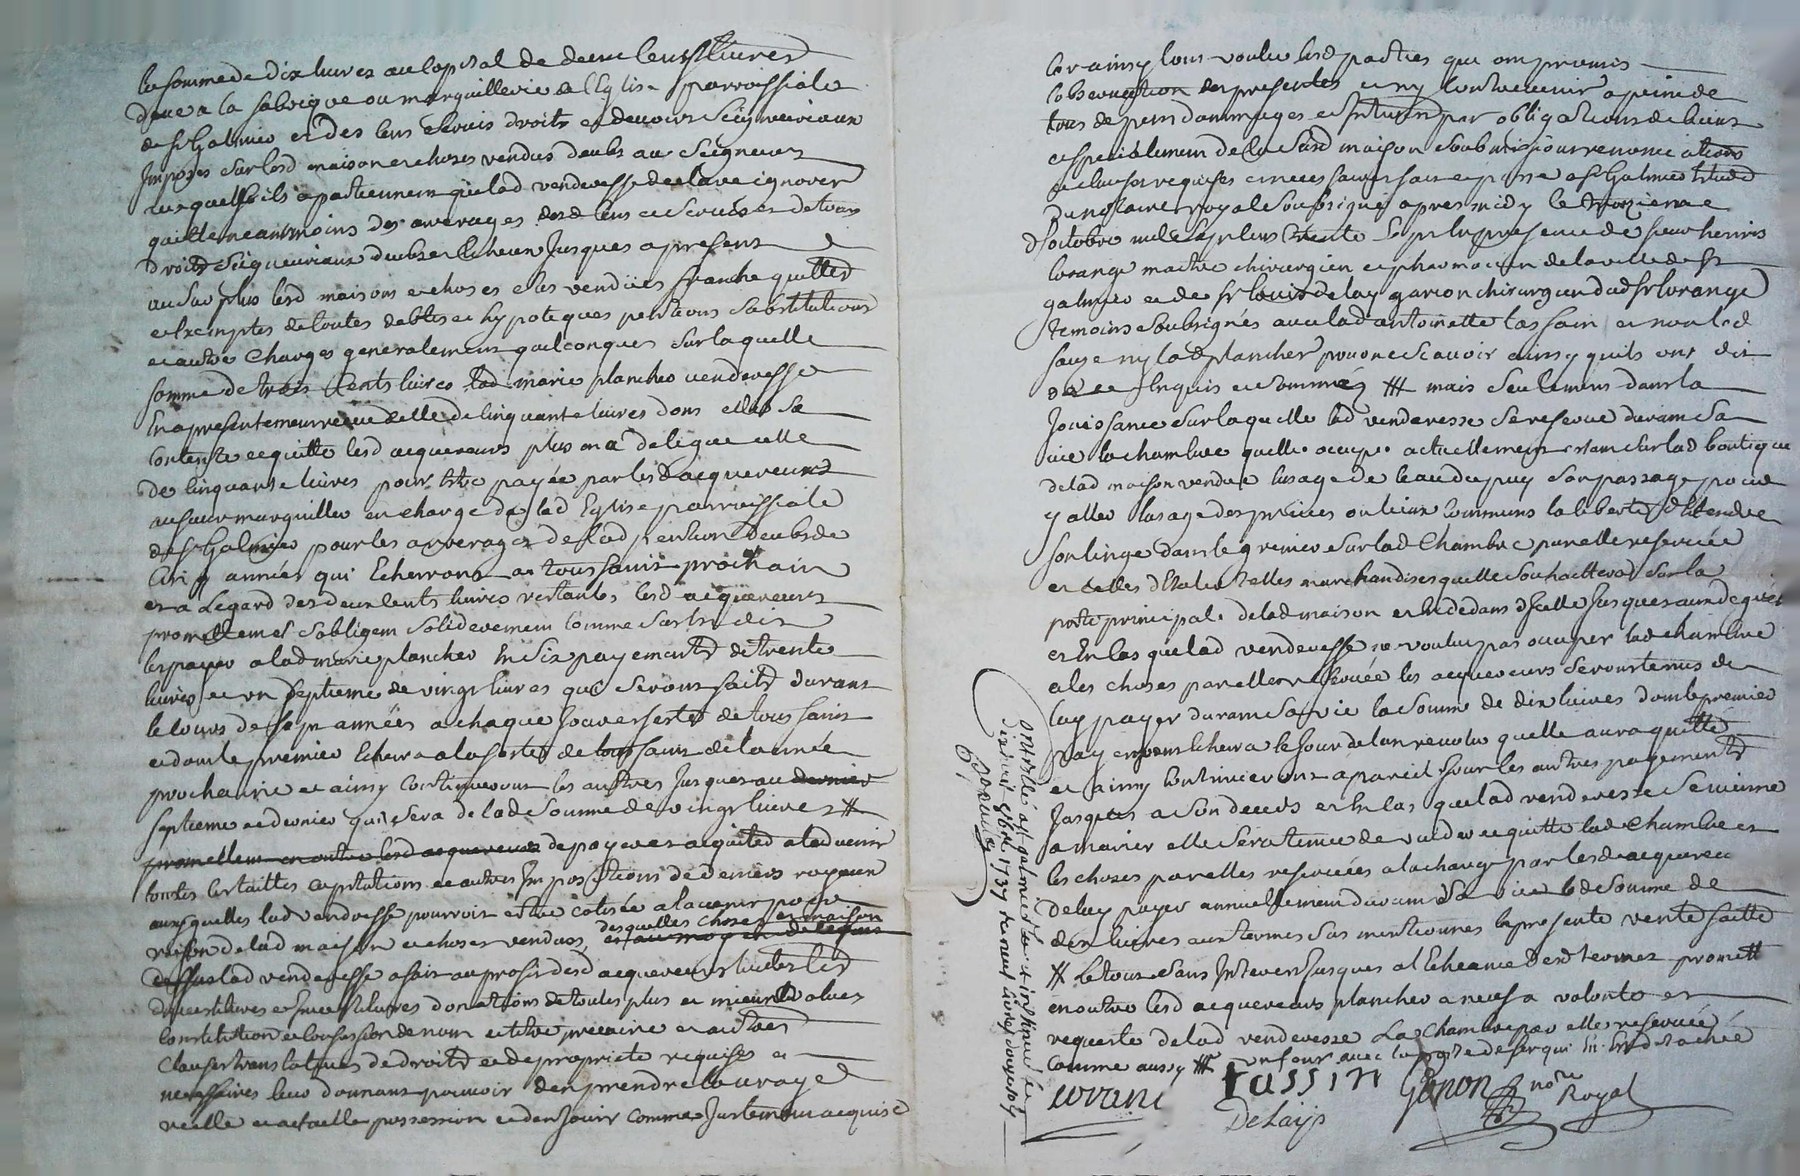 la somme de dix livres au capital de deux cents livres
deue a la fabrique ou marguillerie de l'Eglise parroissiale
de St Galmier et des cens servis droits et devoirs seigneuriaux
Imposes sur lesd maison et choses vendus deubs au Seigneurs
ausquels ils apartiennent que lad venderesse declare ignorer
quitte neantmoins des arrerages desd cens et servis et de tous
droits seigneuriaux deubs et echeus Jusques a present
au surplus lesd maisons et choses elles vendües franche quittes
et Exemptes de toutes debtes et hypoteques pentions substitutions
et autres Charges generalement quelconques sur laquelle
somme de trois Cents livres lad marie plancher venderesse
En a presentement receu celle de cinquante livres dont elle se
contente et quitte lesd acquereurs plus on a delegue celle
de cinquante livres pour être payée par lesd acquereurs
au sieur marguillier en charge de lad Eglise parroissiale
de St Galmier pour les arrerages de lad pention deubs de
Cinq années qui Echerront a toussaint prochain
et a Legard des deux cents livres restants, lesd acquereurs
promettent et s'obligent solidairement Comme sus est dit
les payer a lad marie plancher En six payements de trente
livres et un septieme de vingt livres qui seront faits durant
le cours de sept années a chaque Jour et feste de toussaint
et dont le premier Echera a la feste de toussaint de l'année
prochaine et ainsy continueront les autres Jusques au dernier
septieme et dernier qui sera de lad somme de vingt livres #
promettent en outre lesd acquereurs de payer et acquitter a l'advenir
toutes les tailles capitations et autres Impositions de deniers royaux
ausquelles lad venderesse pourroit estre cotisée a l'avenir pour
raison de lad maison et choses vendues, desquelles choses et maison
et au moyen de ce que
dessus lad venderesse a fait au profit desd acquereurs toutes les
devestitures et Investitures donations de toutes plus et mieux values
Constitution et confession de nom et titre precaire et autres
Clauses translatives de droits et de propriete requises et
necessaires leur donnant pouvoir d'en prendre la vraye
reelle et actuelle possession et d'en Jouir comme Justement acquise
Car ainsy l'ont voulu lesd parties qui ont promis
l'observation des presentes et n'y contrevenir a peine de
tous depens dommages et Interests par obligations de biens
et specialement de la susd maison soubmissions renonciations
et clauses requises et necessaires fait et passe a St Galmier Etude
du notaire royal soussigne apres midy le troizieme
d'octobre mille sept cens trente sept En presence de sieur henris
lorange maitre chirurgien et pharmacien de la ville de St
galmier et de Sr louis delay garcon chirurgien dud Sr lorange
temoins soubsignés avec lad antoinette tassain et non led
sauze ny lad plancher pour ne scavoir ainsy qu'ils ont dit
de ce Enquis et sommés ### mais seulement dans la
Jouissance sur laquelle lad venderesse se reserve durant sa
vie la chambre quelle occupe actuellement estant sur lad boutique
de lad maison vendue lusage de leau du puy son passage pour
y aller lusage des privées ou lieux communs la liberté d'etendre
son linge dans le grenier sur lad Chambre par elle reservée
et celles d'Etaler telles marchandises quelle souhaittera sur la
porte principale de lad maison et En dedans d'Icelle Jusques aux degrés
et En cas que lad venderesse ne voulut pas occuper lad chambre
a les choses par elle reservée les acquereurs seront tenus de
luy payer durant sa vie la somme de dix livres dont le premier
payement Echera le Jour de l'an revolu quelle aura quitté
et ainsy continueront a pareil Jour les autres payements
Jusques a son deceds et En cas que lad venderesse se vienne
a marier elle sera tenue de vuider et quitter lad Chambre et
les choses par elles reservées a la charge par lesd acquereurs
de luy payer annuellement durant sa vie lad somme de
dix livres aux termes sus mentionnes la presente vente faitte
# le tout sans Interest Jusques a l'Echeance desd termes promett
en outre lesd acquereurs plancher a neuf a volonté et
requeste de lad venderesse La Chambre par elle reservée
Comme aussy ### un four avec la porte de fer qui En est detachée
lorange tassin Genon nore Royal
Delay
Controllé a St galmier et insinué le
dixhuit 8bre 1737 receu neuf livres douze sols